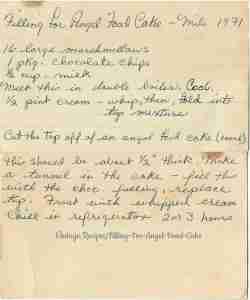 Filling for Angel Food Cake - Milo 1971
16 large marshmallows
1 pkg. chocolate chips
½ cup - milk
Meet this in double boiler. Cool.
½ pint cream - whip, then fold into
top mixture
Cut the top off of an angel food cake
this should be about ½" thick. Make
a tunnel in the cake - fill this
with the choc filling, replace
top. Frost with whipped cream
Chill in refrigerator 2 or 3 hours
Vintage.Recipes/Filling-For-Angel-Food-Cake